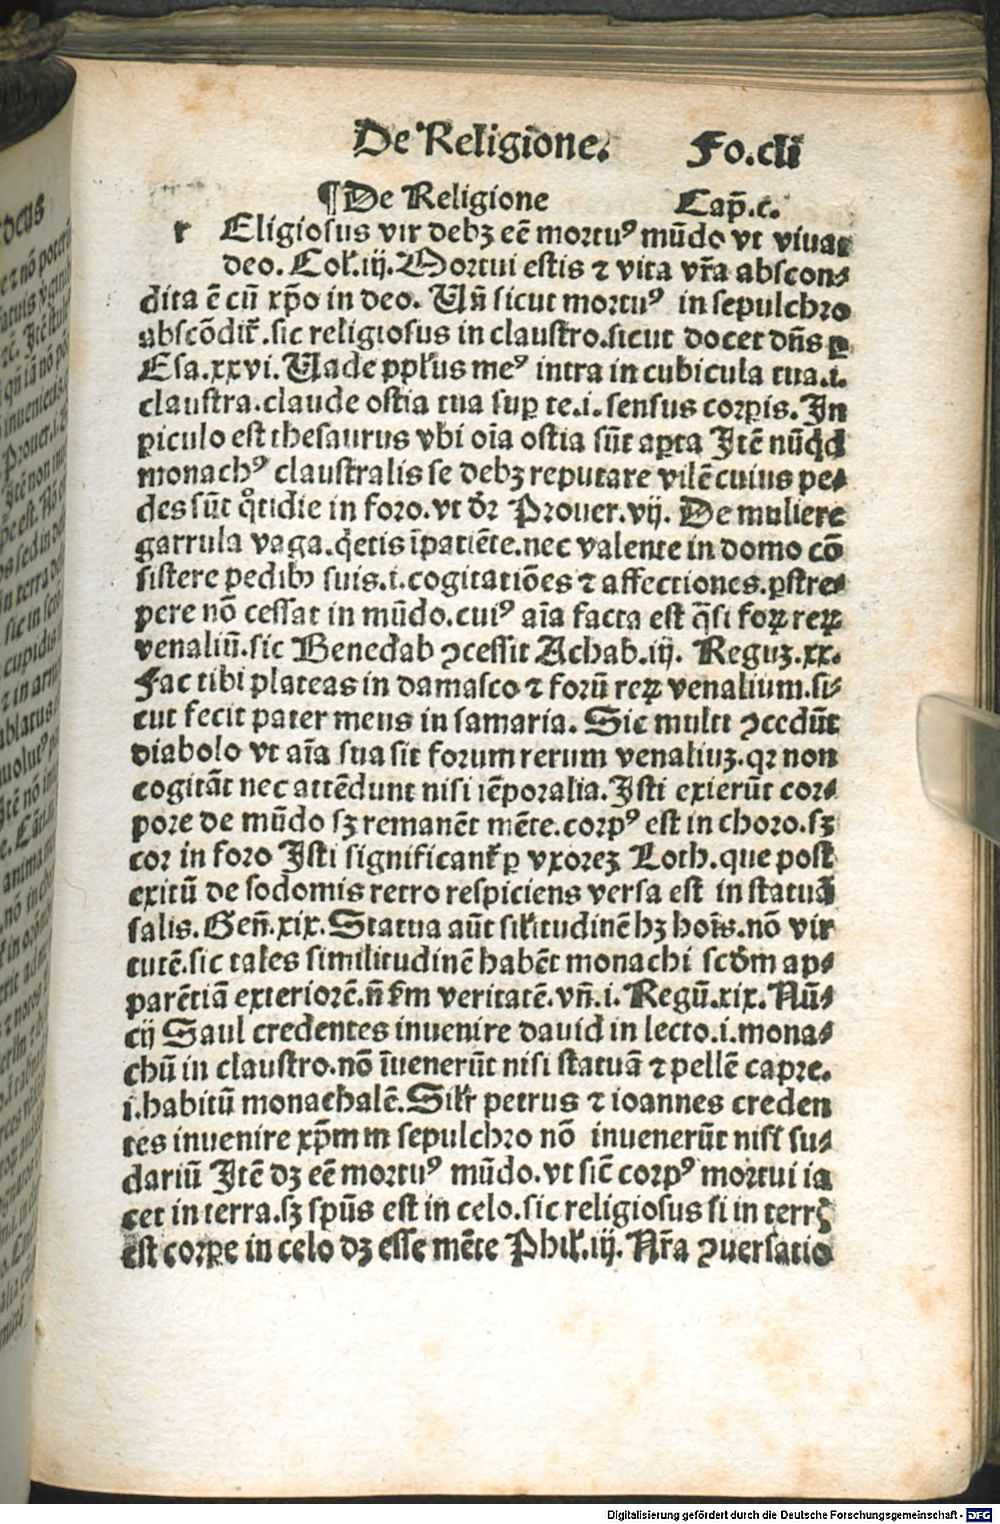 De Religione. Fo.cli
¶De Religione Cap̄.c.
r Eligiosus vir debꝫ eē mortuꝰ mūdo vt viuat
deo. Coł.iij. Mortui estis ⁊ vita vr̄a abscon⸗
dita ē cū xp̄o in deo. Un̄ sicut mortuꝰ in sepulchro
abscōdit̄.sic religiosus in claustro.sicut docet dn̄s ꝑ
Esa.xxvi. Uade ppłus meꝰ intra in cubicula tua.i.
claustra.claude ostia tua suꝑ te.i. sensus corꝑis. In
ꝑiculo est thesaurus vbi oīa ostia sūt aꝑta Itē nūq̇d
monachꝰ claustralis se debꝫ reputare vilē cuius pe⸗
des sūt q̊tidie in foro.vt dr̄ Prouer.vij. De muliere
garrula vaga.q̇etis īpatiēte.nec valente in domo cō
sistere pedibꝰ suis.i.cogitatiōes ⁊ affectiones.ꝑstre⸗
pere nō cessat in mūdo.cuiꝰ aīa facta est q̄si foꝝ reꝝ
venaliū.sic Benedab ꝯcessit Achab.iij. Reguꝫ.xx.
Fac tibi plateas in damasco ⁊ forū reꝝ venalium.si⸗
cut fecit pater meus in samaria. Sic multi ꝯcedūt
diabolo vt aīa sua sit forum rerum venaliuꝫ.qꝛ non
cogitāt nec attēdunt nisi tēporalia. Isti exierūt cor⸗
pore de mūdo sꝫ remanēt mēte.corpꝰ est in choro.sꝫ
cor in foro Isti significant̄ ꝑ vxoreꝫ Loth.que post
exitū de sodomis retro respiciens versa est in statuā
salis. Gen̄.xix. Statua aūt siłitudinē hꝫ hoīs.nō vir
tutē.sic tales similitudinē habēt monachi scd̄m ap⸗
parētiā exteriorē.n̄ fm̄ veritatē.vn̄.i. Regū.xix. Nū⸗
cij Saul credentes inuenire dauid in lecto.i.mona⸗
chū in claustro.nō īuenerūt nisi statuā ⁊ pellē capre.
i.habitū monachalē. Silr̄ petrus ⁊ ioannes creden
tes inuenire xp̄m in sepulchro nō inuenerūt nisi su⸗
dariū Itē dꝫ eē mortuꝰ mūdo.vt sic̄ corpꝰ mortui ia
cet in terra.sꝫ sp̄us est in celo.sic religiosus si in terra
est corꝑe in celo dꝫ esse mēte Phił.iij. Nr̄a ꝯuersatio
Digitalisierung gefördert durch die Deutsche Forschungsgemeinschaft - DFG